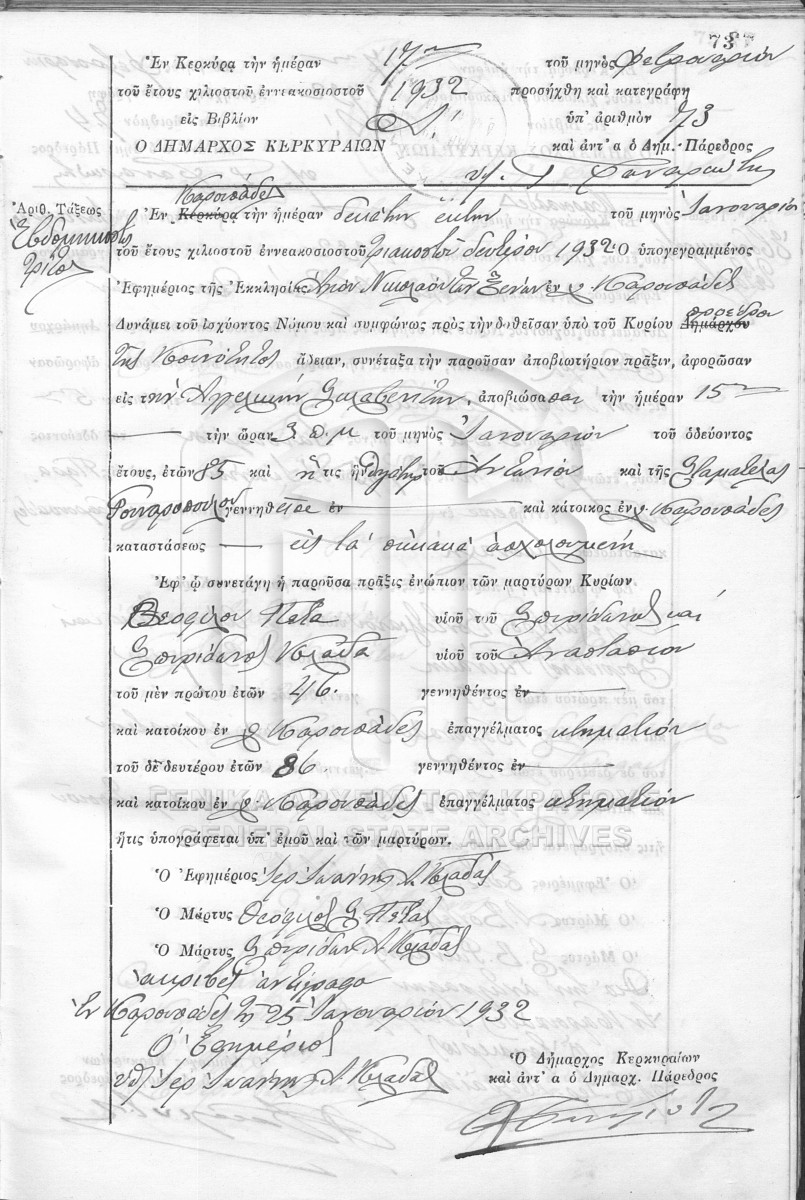 73
Ἐν Κερκύρᾳ τὴν ἡμέραν 17ην τοῦ μηνὸς Φεβρουαρίου
τοῦ ἔτους χιλιοστοῦ ἐννεακοσιοστοῦ 1932 προσήχθη καὶ κατεγράφη
εἰς Βιβλίον Α' ὑπ' ἀριθμὸν 73
Ο ΔΗΜΑΡΧΟΣ ΚΕΡΚΥΡΑΙΩΝ καὶ ἀντ' α ὁ Δημ. Πάρεδρος
Καρουσάδες
Ἀριθ. Τάξεως
Ἑβδομηκοστὸς
τρίτος
Ἐν Κερκύρᾳ τὴν ἡμέραν δεκάτην ἕκτην τοῦ μηνὸς Ἰανουαρίου
τοῦ ἔτους χιλιοστοῦ ἐννεακοσιοστοῦ τριακοστοῦ δευτέρου 1932 Ὁ ὑπογεγραμμένος
Ἐφημέριος τῆς Ἐκκλησίας Ἁγίου Νικολάου τῶν Ξένων ἐν Καρουσάδες
Δυνάμει τοῦ ἰσχύοντος Νόμου καὶ συμφώνως πρὸς τὴν δοθεῖσαν ὑπὸ τοῦ Κυρίου Δημάρχου προέδρου
τῆς Κοινότητος ἄδειαν, συνέταξα τὴν παροῦσαν ἀποβιωτήριον πρᾶξιν, ἀφορῶσαν
εἰς τὴν Ἀγγελικὴν, ἀποβιώσασαν τὴν ἡμέραν 15ην
τὴν ὥραν 3 π.μ τοῦ μηνὸς Ἰανουαρίου τοῦ ὁδεύοντος
ἔτους, ἐτῶν 85 καὶ ἥτις ἦν θυγάτηρ τοῦ Ἀντωνίου καὶ τῆς Σταματέλας
γεννηθεῖσα ἐν καὶ κάτοικος ἐν Καρουσάδες
καταστάσεως εἰς τὰ οἰκιακὰ ἀσχολουμένη
Ἐφ' ᾧ συνετάγη ἡ παροῦσα πρᾶξις ἐνώπιον τῶν μαρτύρων Κυρίων
Θεοφίλου Πέτα υἱοῦ τοῦ Σπυρίδωνος καὶ
Σπυρίδωνος Κελαδᾶ υἱοῦ τοῦ Ἀναστασίου
τοῦ μὲν πρώτου ἐτῶν 46. γεννηθέντος ἐν
καὶ κατοίκου ἐν Καρουσάδες ἐπαγγέλματος κτηματίου
τοῦ δὲ δευτέρου ἐτῶν 86. γεννηθέντος ἐν
καὶ κατοίκου ἐν Καρουσάδες ἐπαγγέλματος κτηματίου
ΓΕΝΙΚΑ ΑΡΧΕΙΑ ΤΟΥ ΚΡΑΤΟΥΣ
GENERAL STATE ARCHIVES
ἥτις ὑπογράφεται ὑπ' ἐμοῦ καὶ τῶν μαρτύρων.
Ὁ Ἐφημέριος Ἱερ Ἰωάννης Α Κελαδᾶς
Ὁ Μάρτυς Θεόφιλος Σ Πέτας
Ὁ Μάρτυς Σπυρίδων Α Κελαδᾶς
ἀκριβὲς ἀντίγραφο
Ἐν Καρουσάδες τῇ 25 Ἰανουαρίου 1932
Ὁ Ἐφημέριος
Ἱερ Ἰωάννης Α Κελαδᾶς
Ὁ Δήμαρχος Κερκυραίων
καὶ ἀντ' α ὁ Δημαρχ. Πάρεδρος